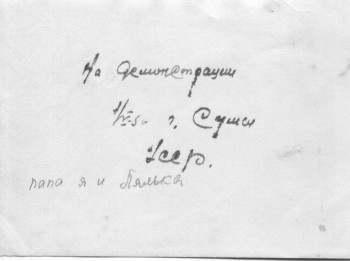 На демонстрации
1/V-50 г. Сумы
Усср.
папа я и Лялька